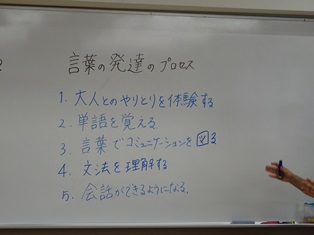 言葉の発達のプロセス
1. 大人とのやりとりを体験する
2. 単語を覚える
3. 言葉でコミュニケーションを図る
4. 文法を理解する
5. 会話ができるようになる